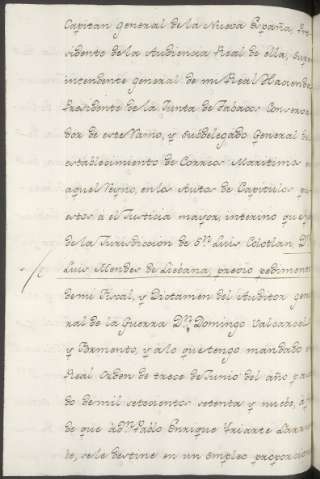 Capitan general de la Nueva España, Pre
sidente de la Audiencia Real de ella, Super
intendente general de mi Real Hacienda
Presidente de la Junta de Tabaco: Conserva
dor de este Ramo, y Subdelegado General del
establecimiento de Correos Maritimos en
aquel Reyno, en los Autos de Capitulos pu
estos á el Justicia mayor interino que
de la Jurisdiccion de Sn. Luis Colotlan Dn.
Luis Mendes de Liebana, precio pedimento
de mi Fiscal, y Dictamen del Auditor gene
ral de la Guerra Dn. Domingo Valcarcel
y Bamento, y á lo que tengo mandado
Real Orden de trece de Junio del año pasa
do de mil setecientos setenta y nuebe, á
de que á Dn. Pablo Enrique Yriarte Larra
te, se le destine en un empleo proporcion